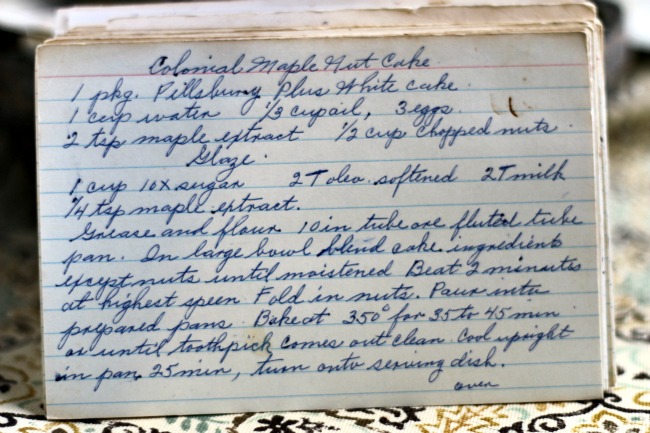 Colonial Maple Nut Cake
1 pkg. Pillsbury Plus White cake
1 cup water 1/3 cup oil, 3 eggs
2 tsp maple extract 1/2 cup chopped nuts.
Glaze.
1 cup 10x sugar 2 T oleo softened 2T milk
1/4 tsp maple extract.
Grease and flour 10 in tube or fluted tube
pan. In large bowl blend cake ingredients
except nuts until moistened Beat 2 minutes
at highest speen Fold in nuts. Pour into
prepared pans. Bake at 350° for 35 to 45 min
or until toothpick comes out clean. Cool upright
in pan 25 min, turn onto serving dish.
over